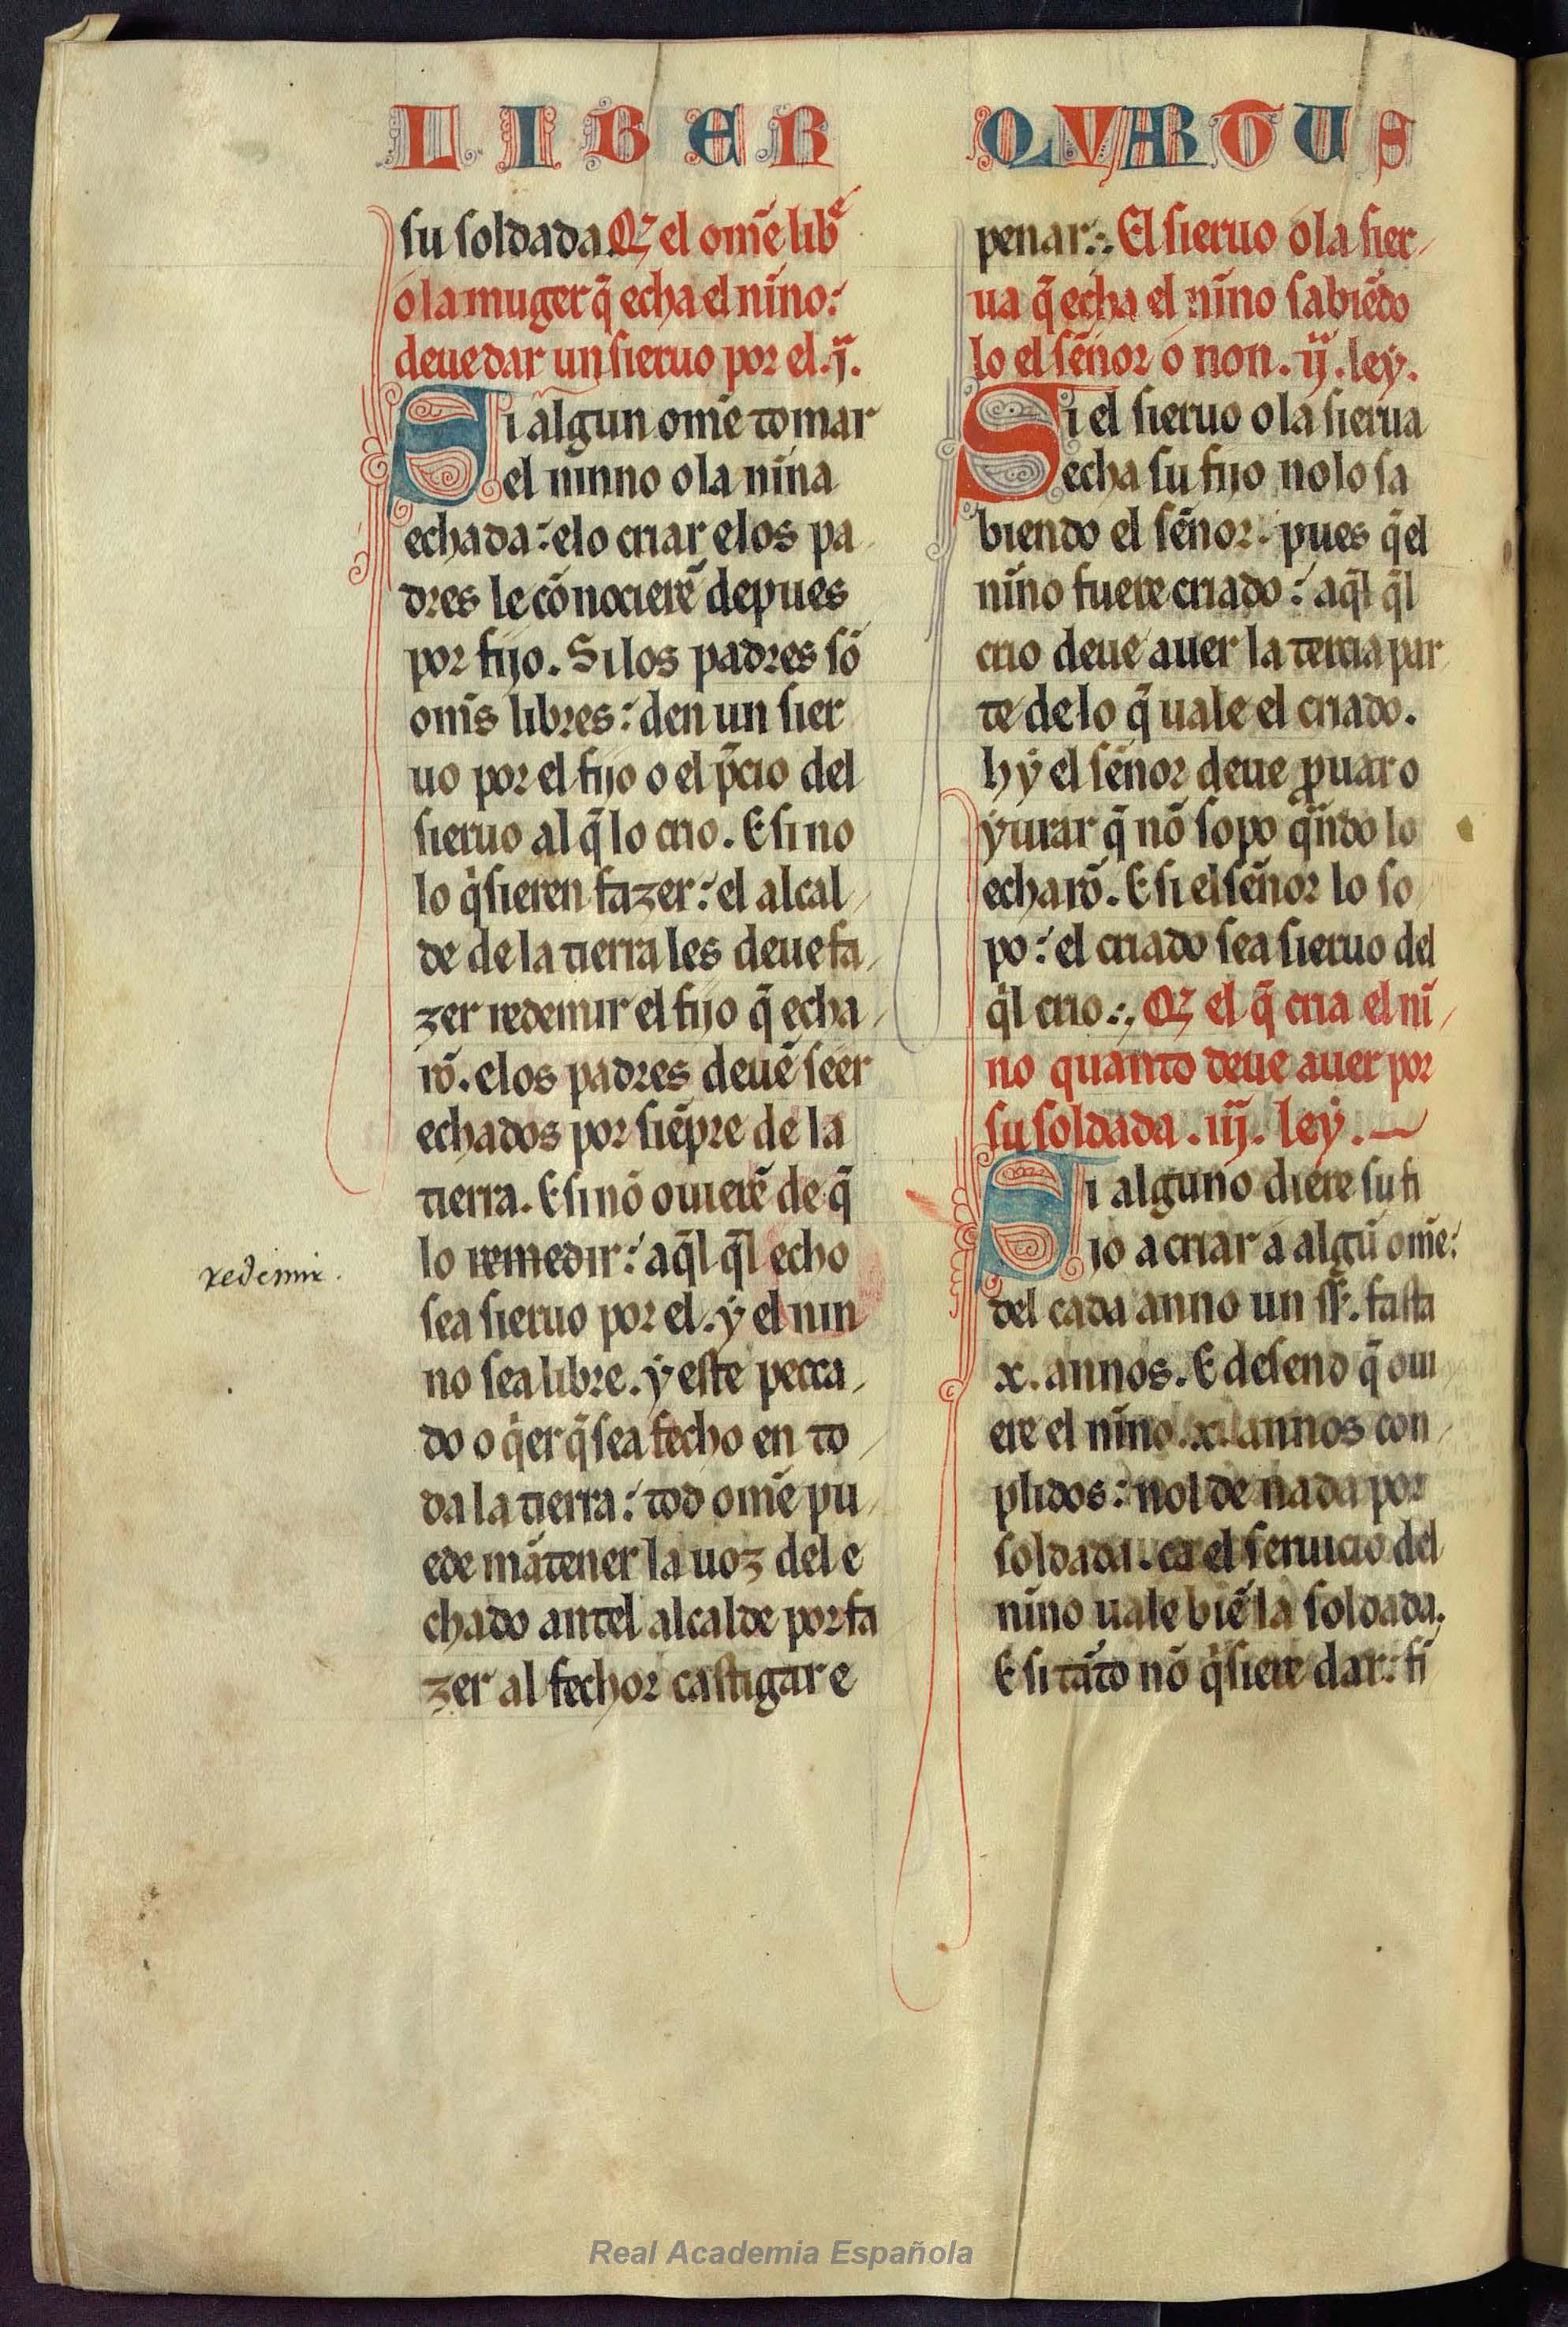 LIBER QVARTUS
su soldada. Qƺ el om̃e libͤ
o la muger q̃ echa el nĩno:
deue dar un sieruo por el. j̃.
Si algun om̃e tomar
el ninno o la nĩna
echada: e lo criar e los pa
dres le cõnociere᷈ depues
por fijo. Si los padres sõ
om̃s libres: den un sier
uo por el fijo o el p̃cio del
sieruo al q̃ lo crio. E si no
lo q̃sieren fazer: el alcal
de de la tierra les deue fa
zer redemir el fijo q̃ echa
rõ. e los padres deuẽ seer
echados por siẽpre de la
tierra. E si nõ ouierẽ de q̃
lo remedir: aq̃l q̃l echo
redemir.
sea sieruo por el. ẏ el nin
no sea libre. ẏ este pecca
do o q̃er q̃ sea fecho en to
da la tierra: tod om̃e pu
ede mãtener la uoz del e
chado antel alcalde por fa
zer al fechor castigar e
penar:. El sieruo o la sier
ua q̃ echa el nĩno sabiẽdo
lo el sẽnor o non. ij̃. leẏ.
Si el sieruo o la sierua
echa su fijo no lo sa
biendo el sẽnor: pues q̃ el
nĩno fuere criado: aq̃l q̃l
crio deue auer la tercia par
te de lo q̃ uale el criado.
hẏ el sẽnor deue ꝓuar o
ẏurar q̃ nõ sopo q̃ndo lo
echarõ. E si el sẽnor lo so
po: el criado sea sieruo del
q̃l crio:. Qƺ el q̃ cria el nĩ
no quanto deue auer por
su soldada. iij̃. leẏ.
Si alguno diere su fi
jo a criar a algũ om̃e:
del cada anno un sł̃. fasta
x. annos. E desend q̃ oui
ere el nĩno .xi. annos con
plidos: nol de nada por
soldada. ca el seruicio del
nĩno uale biẽ la soldada.
E si tãto nõ q̃siere dar: fi
Real Academia Española